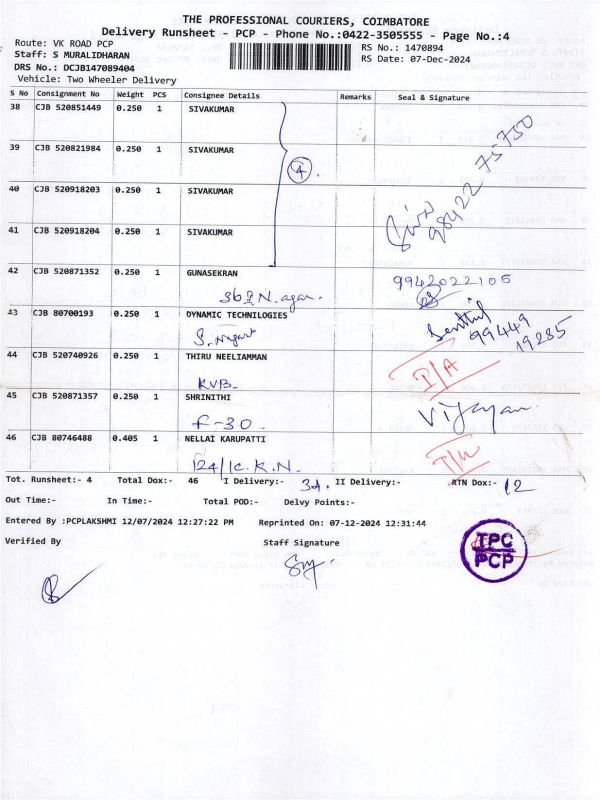 THE PROFESSIONAL COURIERS, COIMBATORE
Delivery Runsheet - PCP - Phone No.:0422-3505555 - Page No.:4
Route: VK ROAD PCP RS No.: 1470894
Staff: S MURALIDHARAN RS Date: 07-Dec-2024
DRS No.: DCJB147089404
Vehicle: Two Wheeler Delivery
S No Consignment No Weight PCS Consignee Details Remarks Seal & Signature
38 CJB 520851449 0.250 1 SIVAKUMAR
39 CJB 520821984 0.250 1 SIVAKUMAR
4.
40 CJB 520918203 0.250 1 SIVAKUMAR
98422 75750
41 CJB 520918204 0.250 1 SIVAKUMAR
42 CJB 520871352 0.250 1 GUNASEKRAN 9942022106
N. agar.
43 CJB 80700193 0.250 1 DYNAMIC TECHNILOGIES Senthil 99449 19285
S. Nagar
44 CJB 520740926 0.250 1 THIRU NEELIAMMAN I/A
KVB
45 CJB 520871357 0.250 1 SHRINITHI Vijayan
F-30.
46 CJB 80746488 0.405 1 NELLAI KARUPATTI
124/1C. K.N.
Tot. Runsheet:- 4 Total Dox:- 46 I Delivery:- 34. II Delivery:- RTN Dox:- 12
Out Time:- In Time:- Total POD:- Delvy Points:-
Entered By :PCPLAKSHMI 12/07/2024 12:27:22 PM Reprinted On: 07-12-2024 12:31:44
Verified By Staff Signature
TPC
PCP